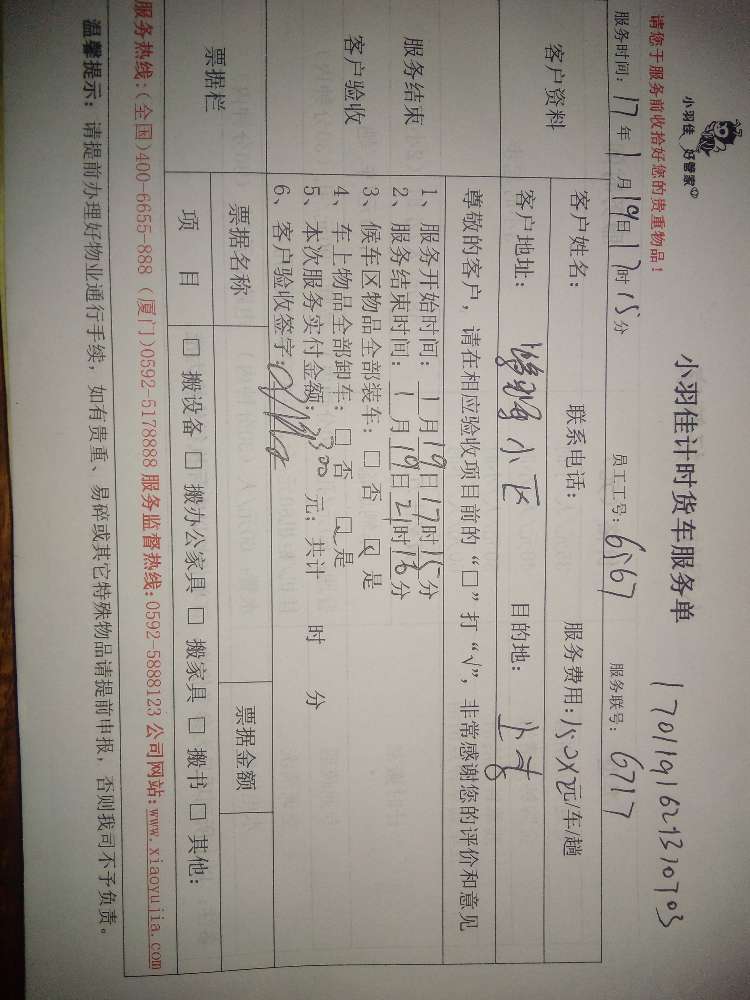 小羽佳 好管家
小羽佳计时货车服务单
17011916293110703
请您于服务前收拾好您的贵重物品！
服务时间: 17年1月19日17时15分 员工工号: 6567 服务联号: 6717
客户资料
客户姓名: 联系电话: 服务费用: 150X2元/车/趟
客户地址: 小区 目的地:
尊敬的客户，请在相应验收项目前的“□”打“√”，非常感谢您的评价和意见
服务结束
客户验收
1、服务开始时间: 1月19日17时15分
2、服务结束时间: 1月19日21时16分
3、候车区物品全部装车: □ 否 ☑ 是
4、车上物品全部卸车: □ 否 ☑ 是
5、本次服务实付金额: 300元; 共计 时 分
6、客户验收签字:
票据栏
票据名称 票据金额
项目 □ 搬设备 □ 搬办公家具 □ 搬家具 □ 搬书 □ 其他:
服务热线:(全国)400-6655-888 (厦门)0592-5178888 服务监督热线:0592-5888123 公司网站:www.xiaoyujia.com
温馨提示: 请提前办理好物业通行手续，如有贵重、易碎或其它特殊物品请提前申报，否则我司不予负责。